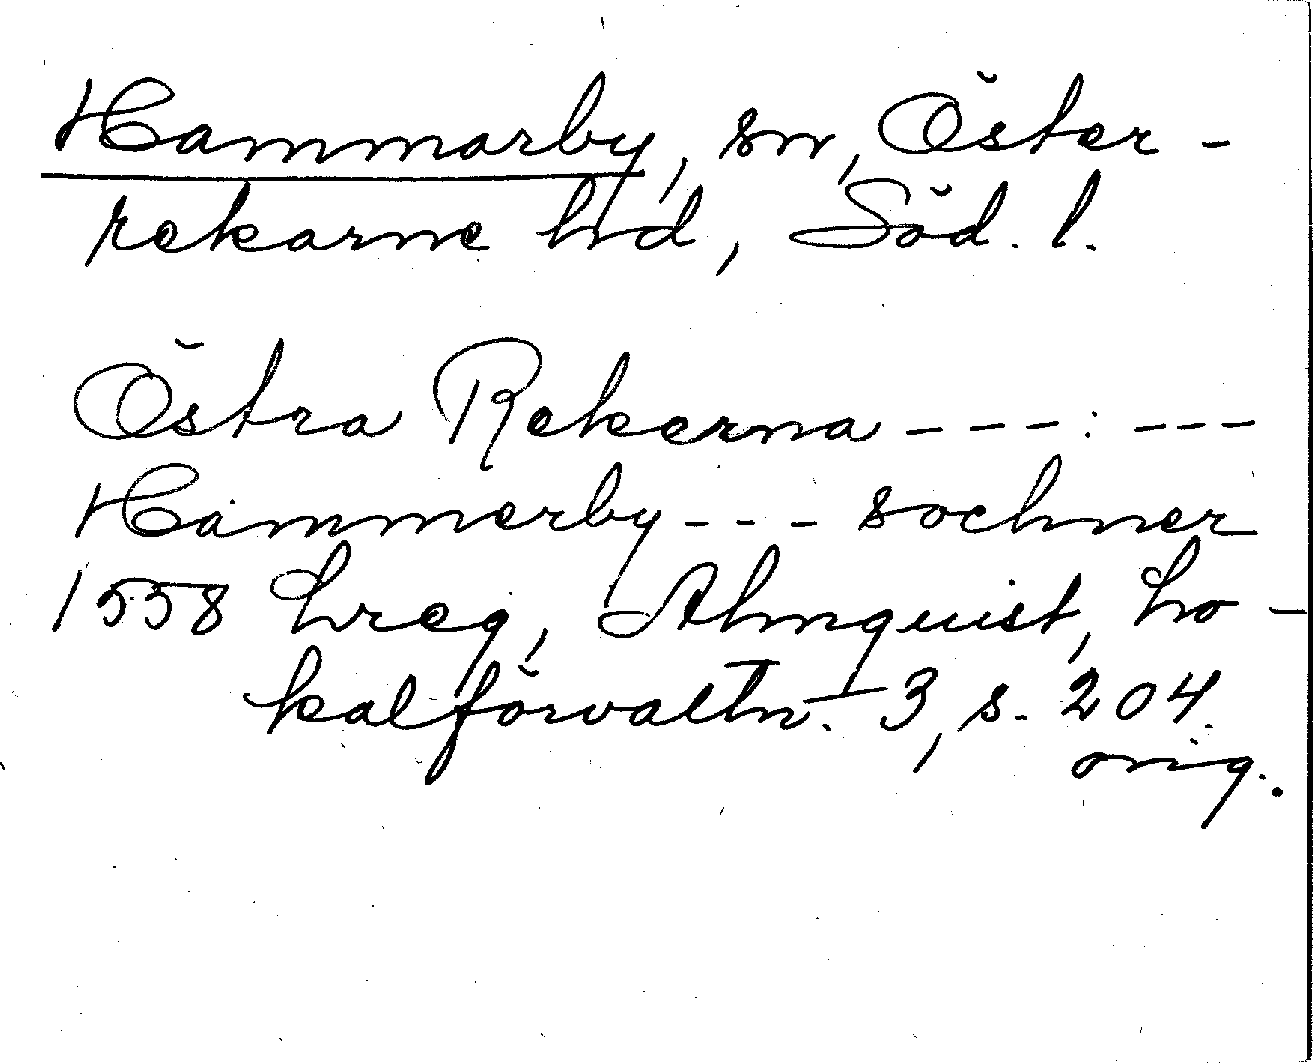 Hammarby, sn, Öster-
rekarne hd, Söd. l.
Östra Rekerna ---:---
Hammerby --- sochner
1558 Lreg, Almquist, Lo-
kalförvaltn. 3, s. 204.
orig.